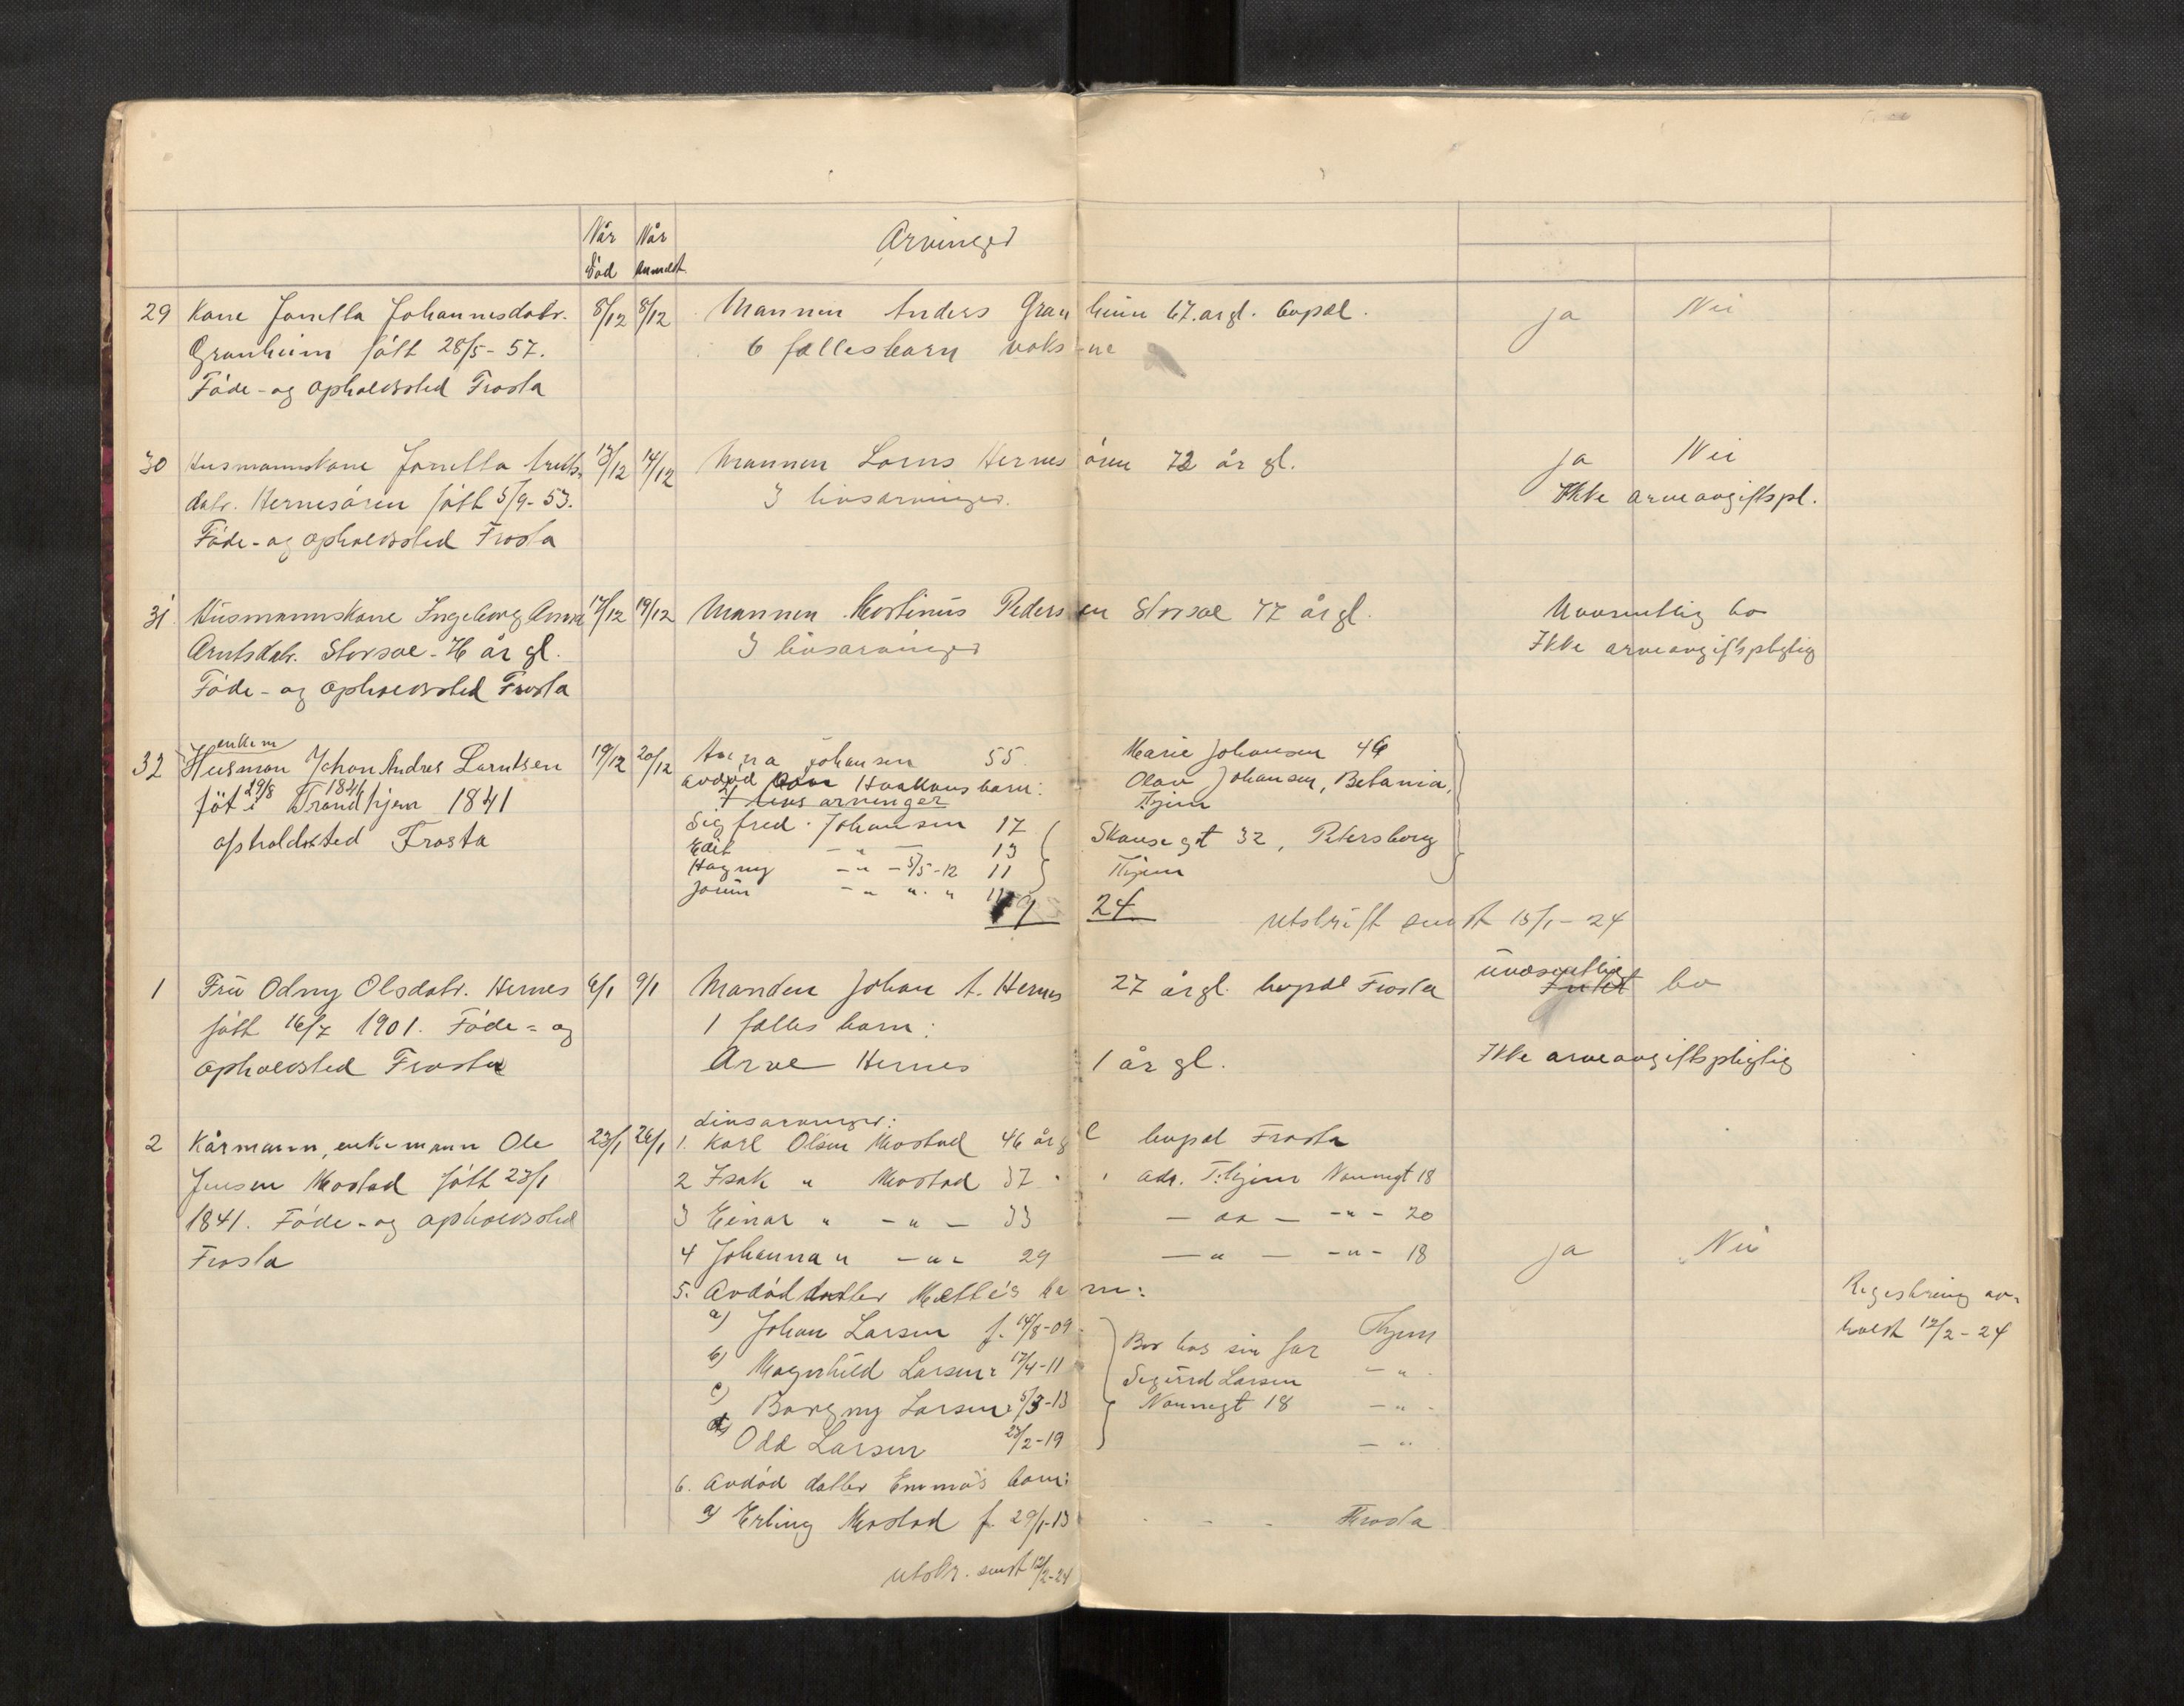 Når Når Arvinger
Död Anmeldt.
29 Kone Jonetta Johannesdatr. 8/12 8/12 Mannen Anders Granheim 67. årgl. bopæl. ja Nei
Granheim född 28/5 - 57. 6 fællesbarn voksne
Föde - og opholdssted Frosta
30 Husmannskone Jonetta Arnts- 13/12 14/12 Mannen Lorns Hernesören 72 år gl. ja Nei
datr. Hernesören födt 5/9 - 53. 3 livsarvinger. Ikke arveavgiftspl.
Föde - og opholdssted Frosta
31. Husmannskone Ingeborg Anna 17/12 19/12 Mannen Martinus Pedersen Storsoe 77 år gl. Uvæsentlig bo
Arntsdatr. Storsoe - 76 år gl. 3 livsarvinger Ikke arveavgiftspligtig
Föde - og opholdssted Frosta
enkem
32 Husman Johan Andres Larntsen 19/12 20/12 Anna Johansen 55. Marie Johansen 46
29/8 1841 avdød Haakons barn: Olav Johansen, Betania,
föt i Trondhjem 1841 livsarvinger Thjem
opholdsted Frosta Sigfred Johansen 17 Skansegt 32, Petersborg
Edit - " - 13 Thjem
Hagny - " - 5/5-12 11
Jorun - " " " 11
19 24 Utskrift sendt 15/1 - 24
1 Fru Odny Olsdatr. Hernes 6/1 9/1 Manden Johan A. Hernes 27 årgl. bopæl Frosta uvæsentlig bo
födt 16/7 1901. Föde - og 1 fælles barn:
opholdsted Frosta Arve Hernes 1 år gl. Ikke arveavgiftspligtig
Livsarvinger:
2 Kårmann, enkemann Ole 23/1 26/1 1. Karl Olsen Mostad 46 årgl bopæl Frosta
Jensen Mostad födt 23/1 2 Isak " Mostad 37 " adr. T.hjem Nonnegt 18
1841. Föde - og opholdssted 3 Einar " - " - 33 - " - - " - 20
Frosta 4 Johanna " - " - 29 - " - - " - 18 ja Nei
5. Avdöd datter Mette's barn: Registrering av-
a) Johan Larsen f. 14/8-09 Bor hos sin far Thjem holdt 12/2 - 24
b) Magnhild Larsen " 17/4-11 Sigurd Larsen - " -
c) Borgny Larsen " 5/3-13 Nonnegt 18 - " -
d) Odd Larsen 23/2-19 - " -
6. Avdöd datter Emma's barn:
a) Erling Mostad f. 29/1-13 - - - Frosta
utskr. sendt 12/2-24